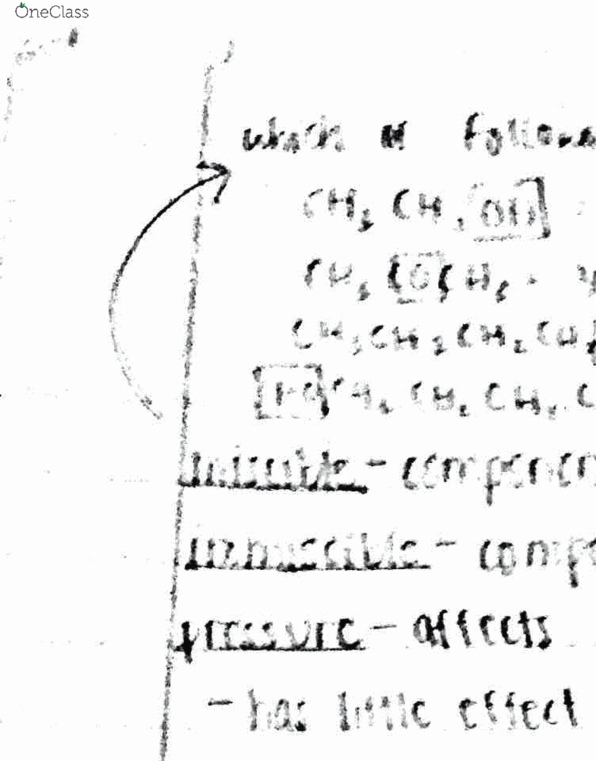 OneClass
which of follow
CH₃ CH₂ OH
CH₃ O CH₃
CH₃CH₂CH₂CH
HO CH₂ CH₂ CH₂ C
miscible - componen
immiscible - comp
pressure - affects
- has little effect